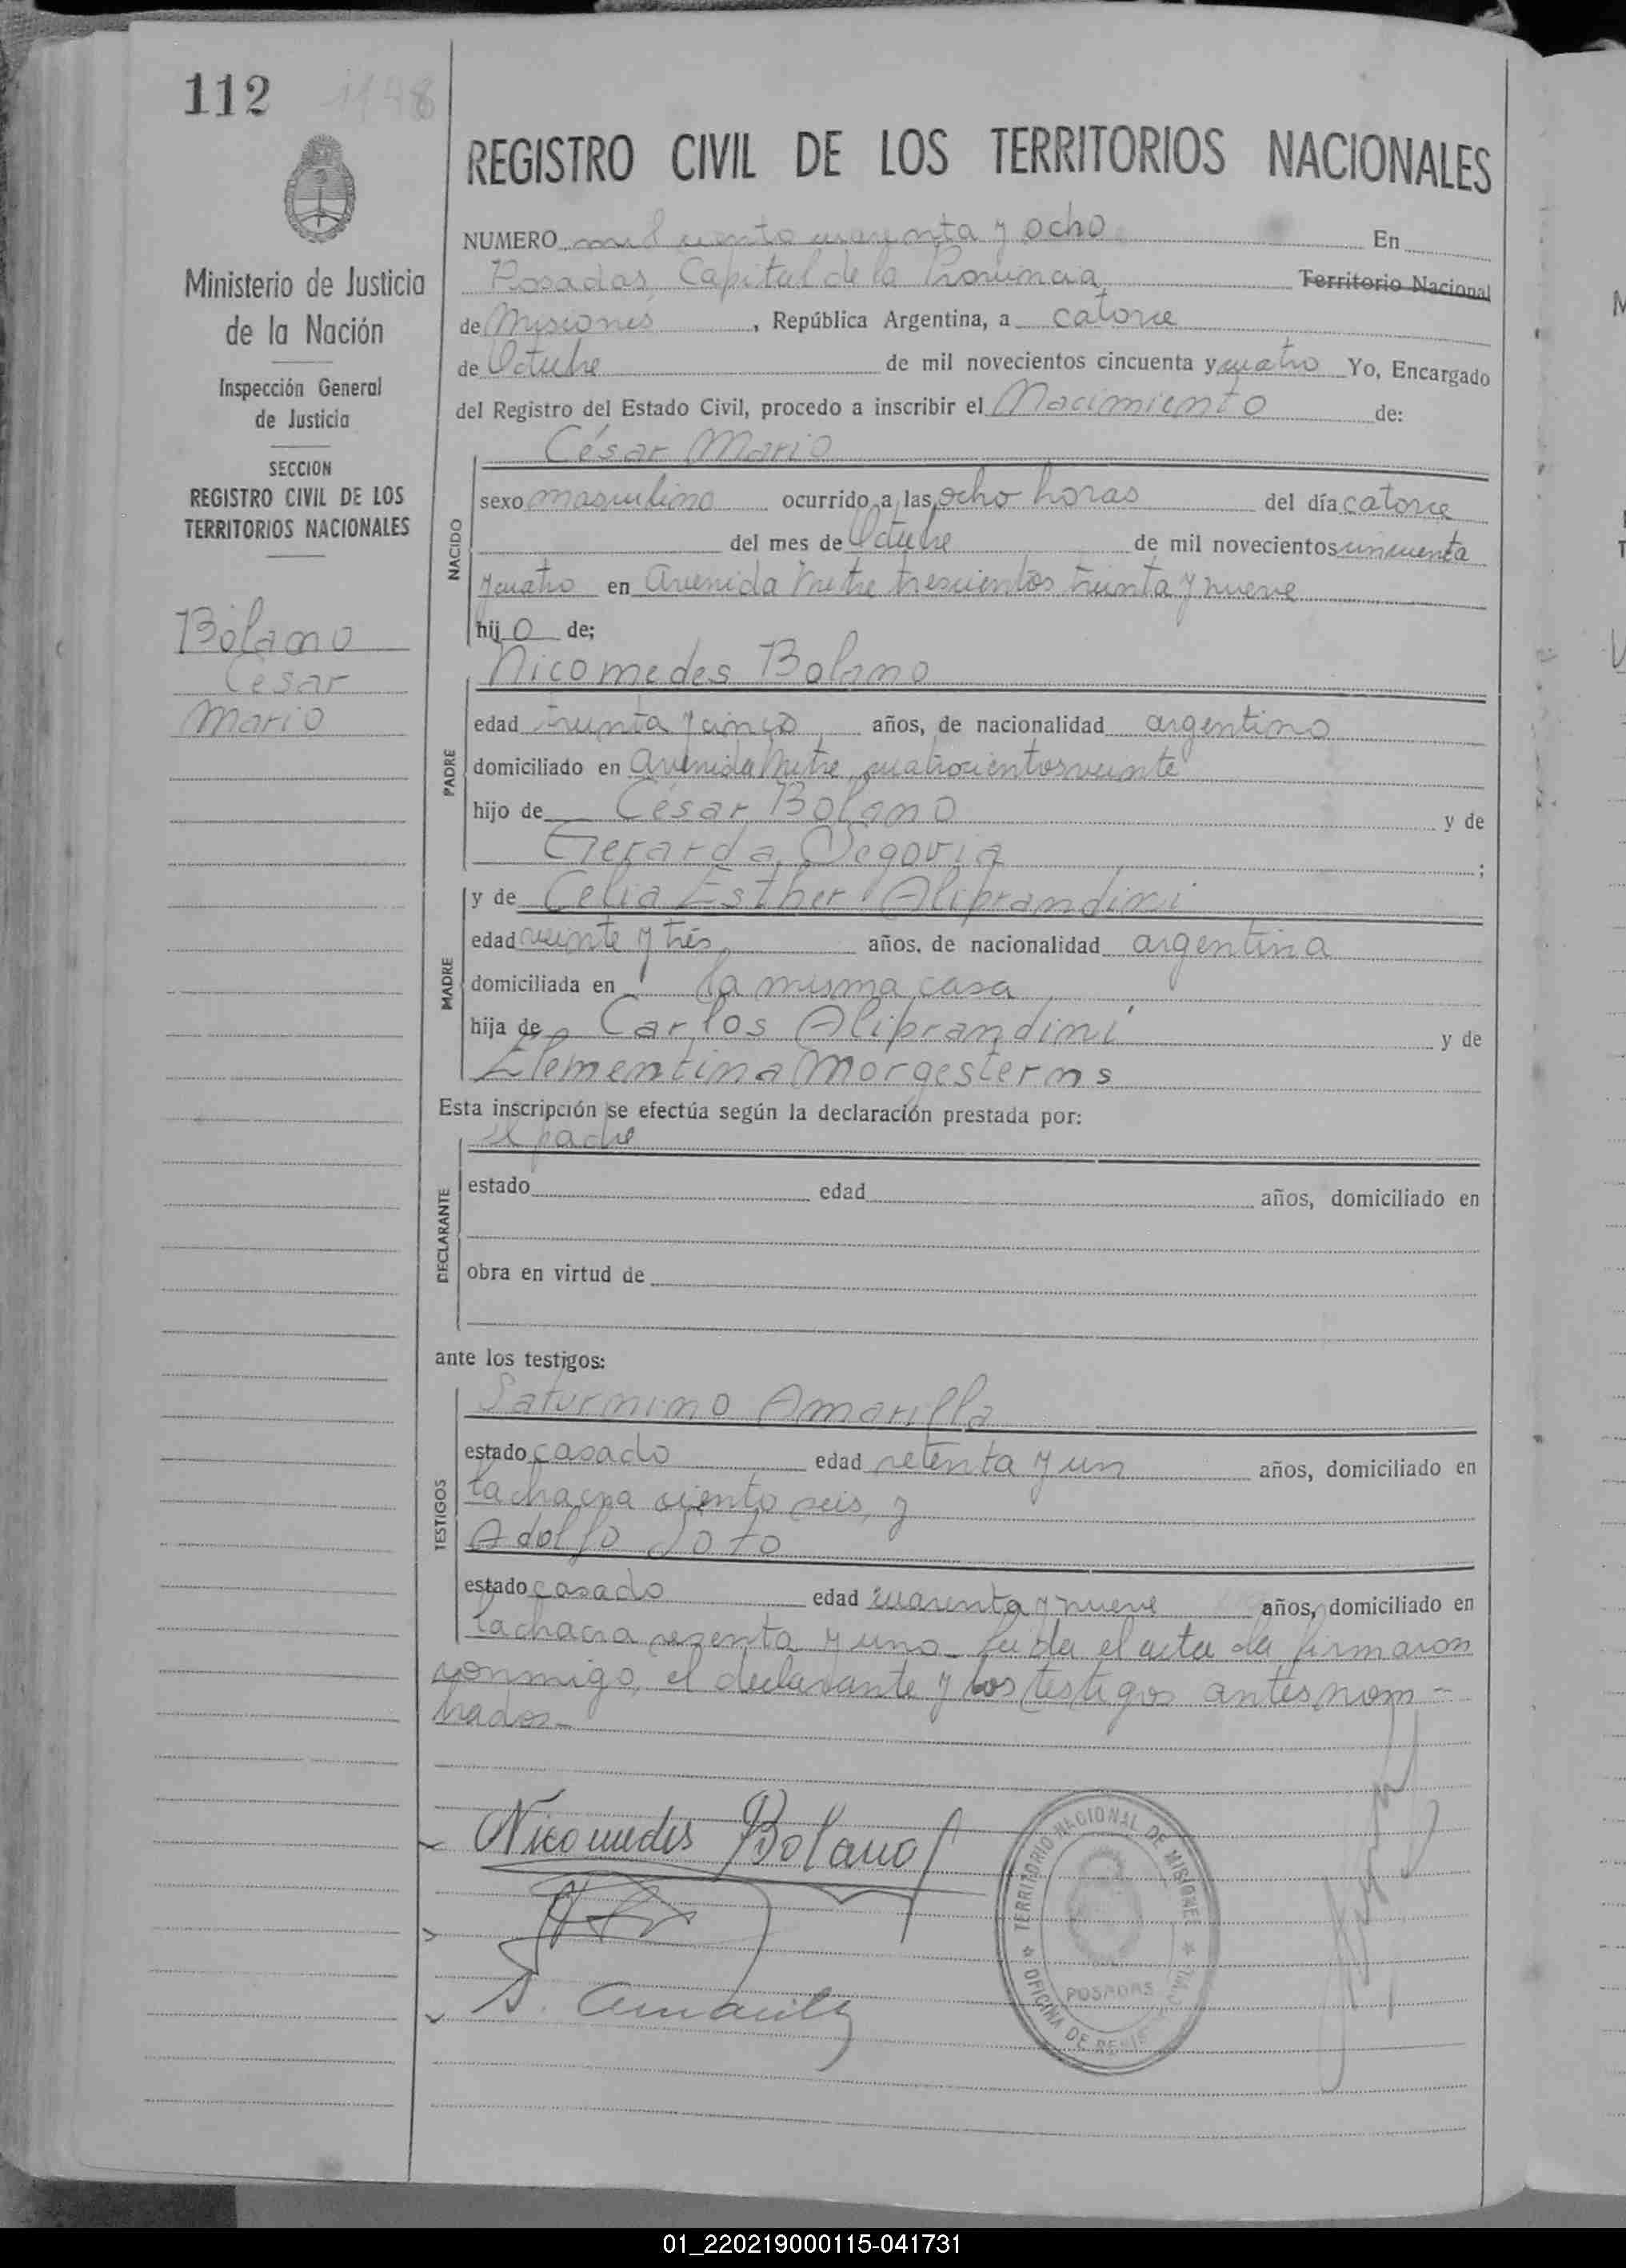 112 1148
REGISTRO CIVIL DE LOS TERRITORIOS NACIONALES
Ministerio de Justicia
de la Nación
Inspección General
de Justicia
SECCION
REGISTRO CIVIL DE LOS
TERRITORIOS NACIONALES
Bolano
César
Mario
NUMERO mil ciento cuarenta y ocho En
Posadas, Capital de la Provincia Territorio Nacional
de Misiones, República Argentina, a catorce
de Octubre de mil novecientos cincuenta y cuatro Yo, Encargado
del Registro del Estado Civil, procedo a inscribir el Nacimiento de:
César Mario
NACIDO
sexo masculino ocurrido a las ocho horas del día catorce
del mes de Octubre de mil novecientos cincuenta
y cuatro en Avenida Mitre trescientos treinta y nueve
hijo de;
Nicomedes Bolano
PADRE
edad treinta y cinco años, de nacionalidad argentino
domiciliado en Avenida Mitre cuatrocientos veinte
hijo de César Bolano y de
Gerarda Segovia ;
y de Celia Esther Aliprandini
MADRE
edad veinte y trés años, de nacionalidad argentina
domiciliada en la misma casa
hija de Carlos Aliprandini y de
Elementina Morgesterns
Esta inscripción se efectúa según la declaración prestada por:
el padre
DECLARANTE
estado edad años, domiciliado en
obra en virtud de
ante los testigos:
Saturnino Amarilla
TESTIGOS
estado casado edad setenta y un años, domiciliado en
la chacra ciento seis, y
Adolfo Soto
estado casado edad cuarenta y nueve años, domiciliado en
la chacra sesenta y uno. Leída el acta la firmaron
conmigo, el declarante y los testigos antes nom-
brados.-
Nicomedes Bolano
S. Amarilla
TERRITORIO NACIONAL DE MISIONES
OFICINA DE REGISTRO CIVIL
POSADAS
01_220219000115-041731